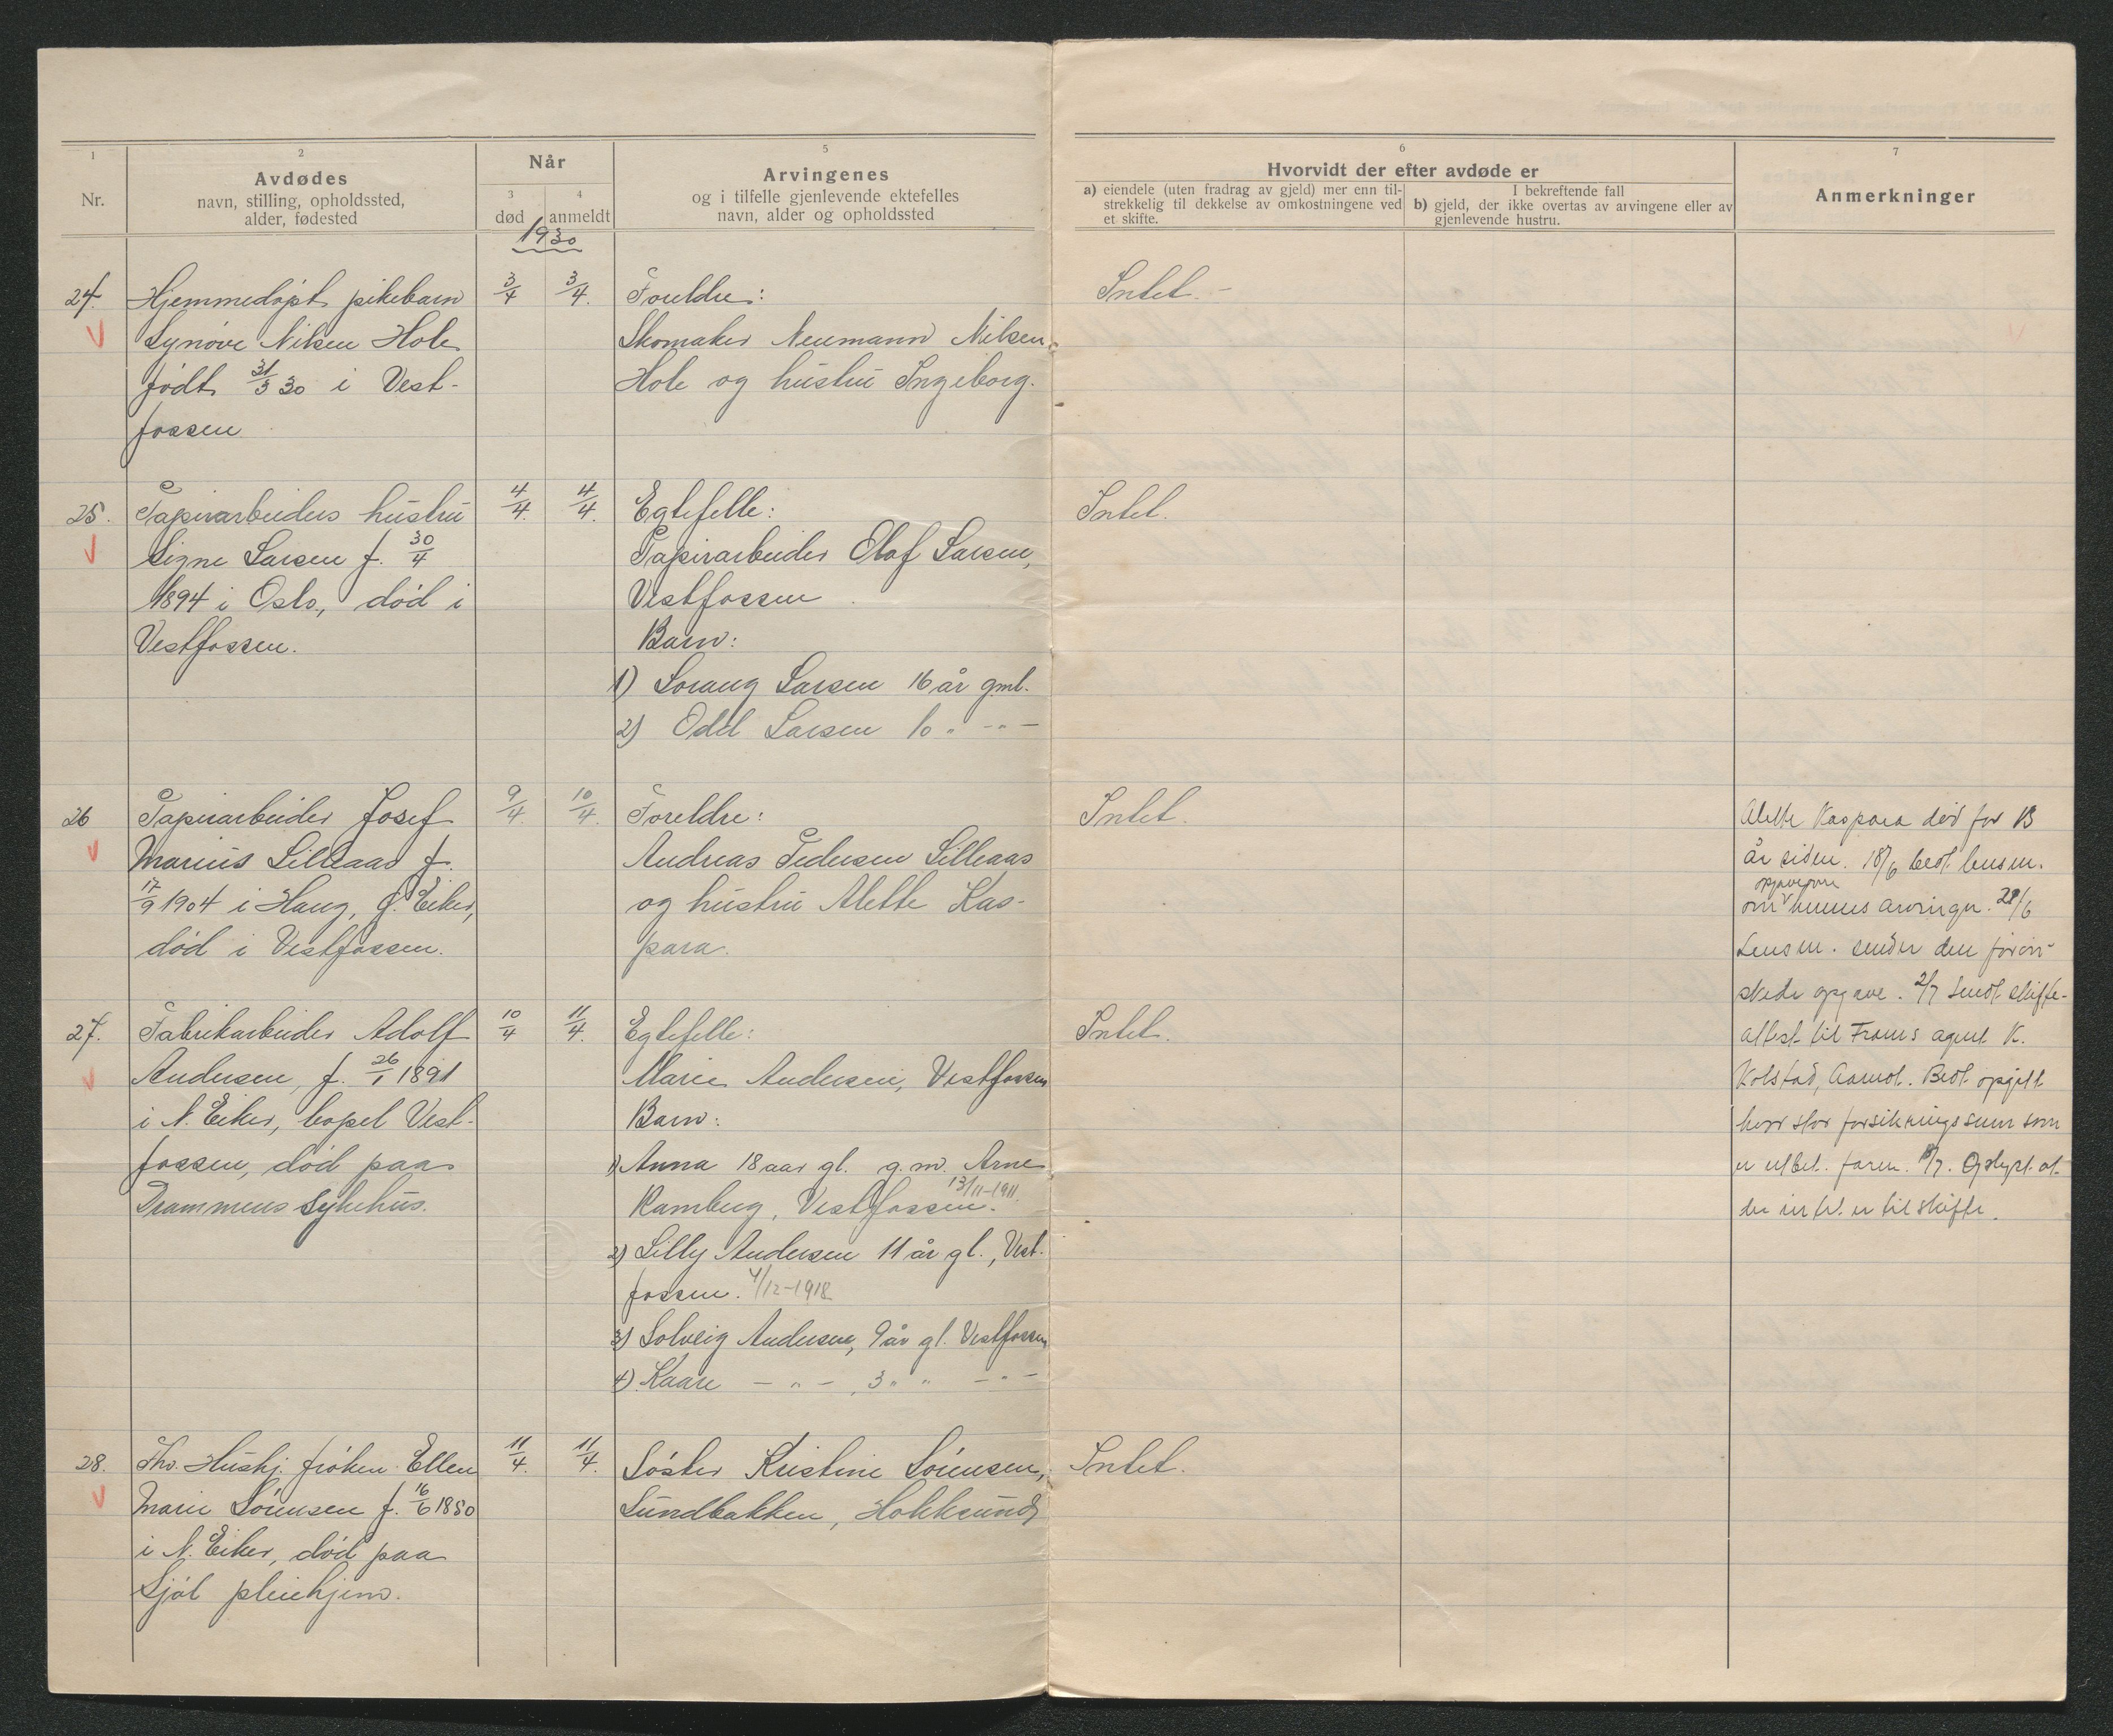 1
Nr.
2
Avdødes
navn, stilling, opholdssted,
alder, fødested
Når
3
død
4
anmeldt
5
Arvingenes
og i tilfelle gjenlevende ektefelles
navn, alder og opholdssted
6
Hvorvidt der efter avdøde er
a) eiendele (uten fradrag av gjeld) mer enn til-
strekkelig til dekkelse av omkostningene ved
et skifte.
I bekreftende fall
b) gjeld, der ikke overtas av arvingene eller av
gjenlevende hustru.
7
Anmerkninger
1930
24.
Hjemmedøpt pikebarn
Synøve Nilsen Hole
født 31/3 30 i Vest-
fossen
3/4
3/4.
Foreldre:
Skomaker Neumann Nilsen
Hole og hustru Ingeborg.
Intet. -
25.
Papirarbeiders hustru
Signe Larsen f. 30/4
1894 i Oslo, død i
Vestfossen.
4/4.
4/4.
Egtefelle:
Papirarbeider Olaf Larsen,
Vestfossen
Barn:
1) Soraug Larsen 16 år gml.
2) Odd Larsen 10 " - " -
Intet.
26
Papirarbeider Josef
Marius Lilleaas f.
17/9 1904 i Haug, Ø. Eiker,
død i Vestfossen.
9/4.
10/4.
Foreldre:
Andreas Pedersen Lilleaas
og hustru Alette Kas-
para.
Intet.
Alette Kaspara død for 13
år siden. 18/6 bedt lensm.
opgave over
om hennes arvinger. 28/6
Lensm. sender den forøn-
skede opgave. 2/7 Sendt skifte-
attest til Frams agent K.
Kolstad, Aamot. Bedt opgitt
hvor stor forsikringssum som
er utbet. faren. 8/7. Oplyst at
der intet er til skifte.
27.
Fabrikarbeider Adolf
Andersen, f. 26/1 1891
i N. Eiker, bopel Vest-
fossen, død paa
Drammens sykehus.
10/4
11/4.
Egtefelle:
Marie Andersen, Vestfossen
Barn:
1) Anna 18 aar gl. g. m. Arne
Ramberg, Vestfossen. 13/11-1911.
2) Lilly Andersen 11 år gl., Vest-
fossen. 4/12-1918
3) Solveig Andersen, 9 år gl. Vestfossen
4) Kaare - " - , 3 " " - " -
Intet.
28.
Fhv. Hushj. frøken Ellen
Marie Sørensen f. 16/6 1850
i N. Eiker, død paa
Sjøl pleiehjem.
11/4.
11/4.
Søster Kristine Sørensen,
Sundbakken, Hokksund
Intet.